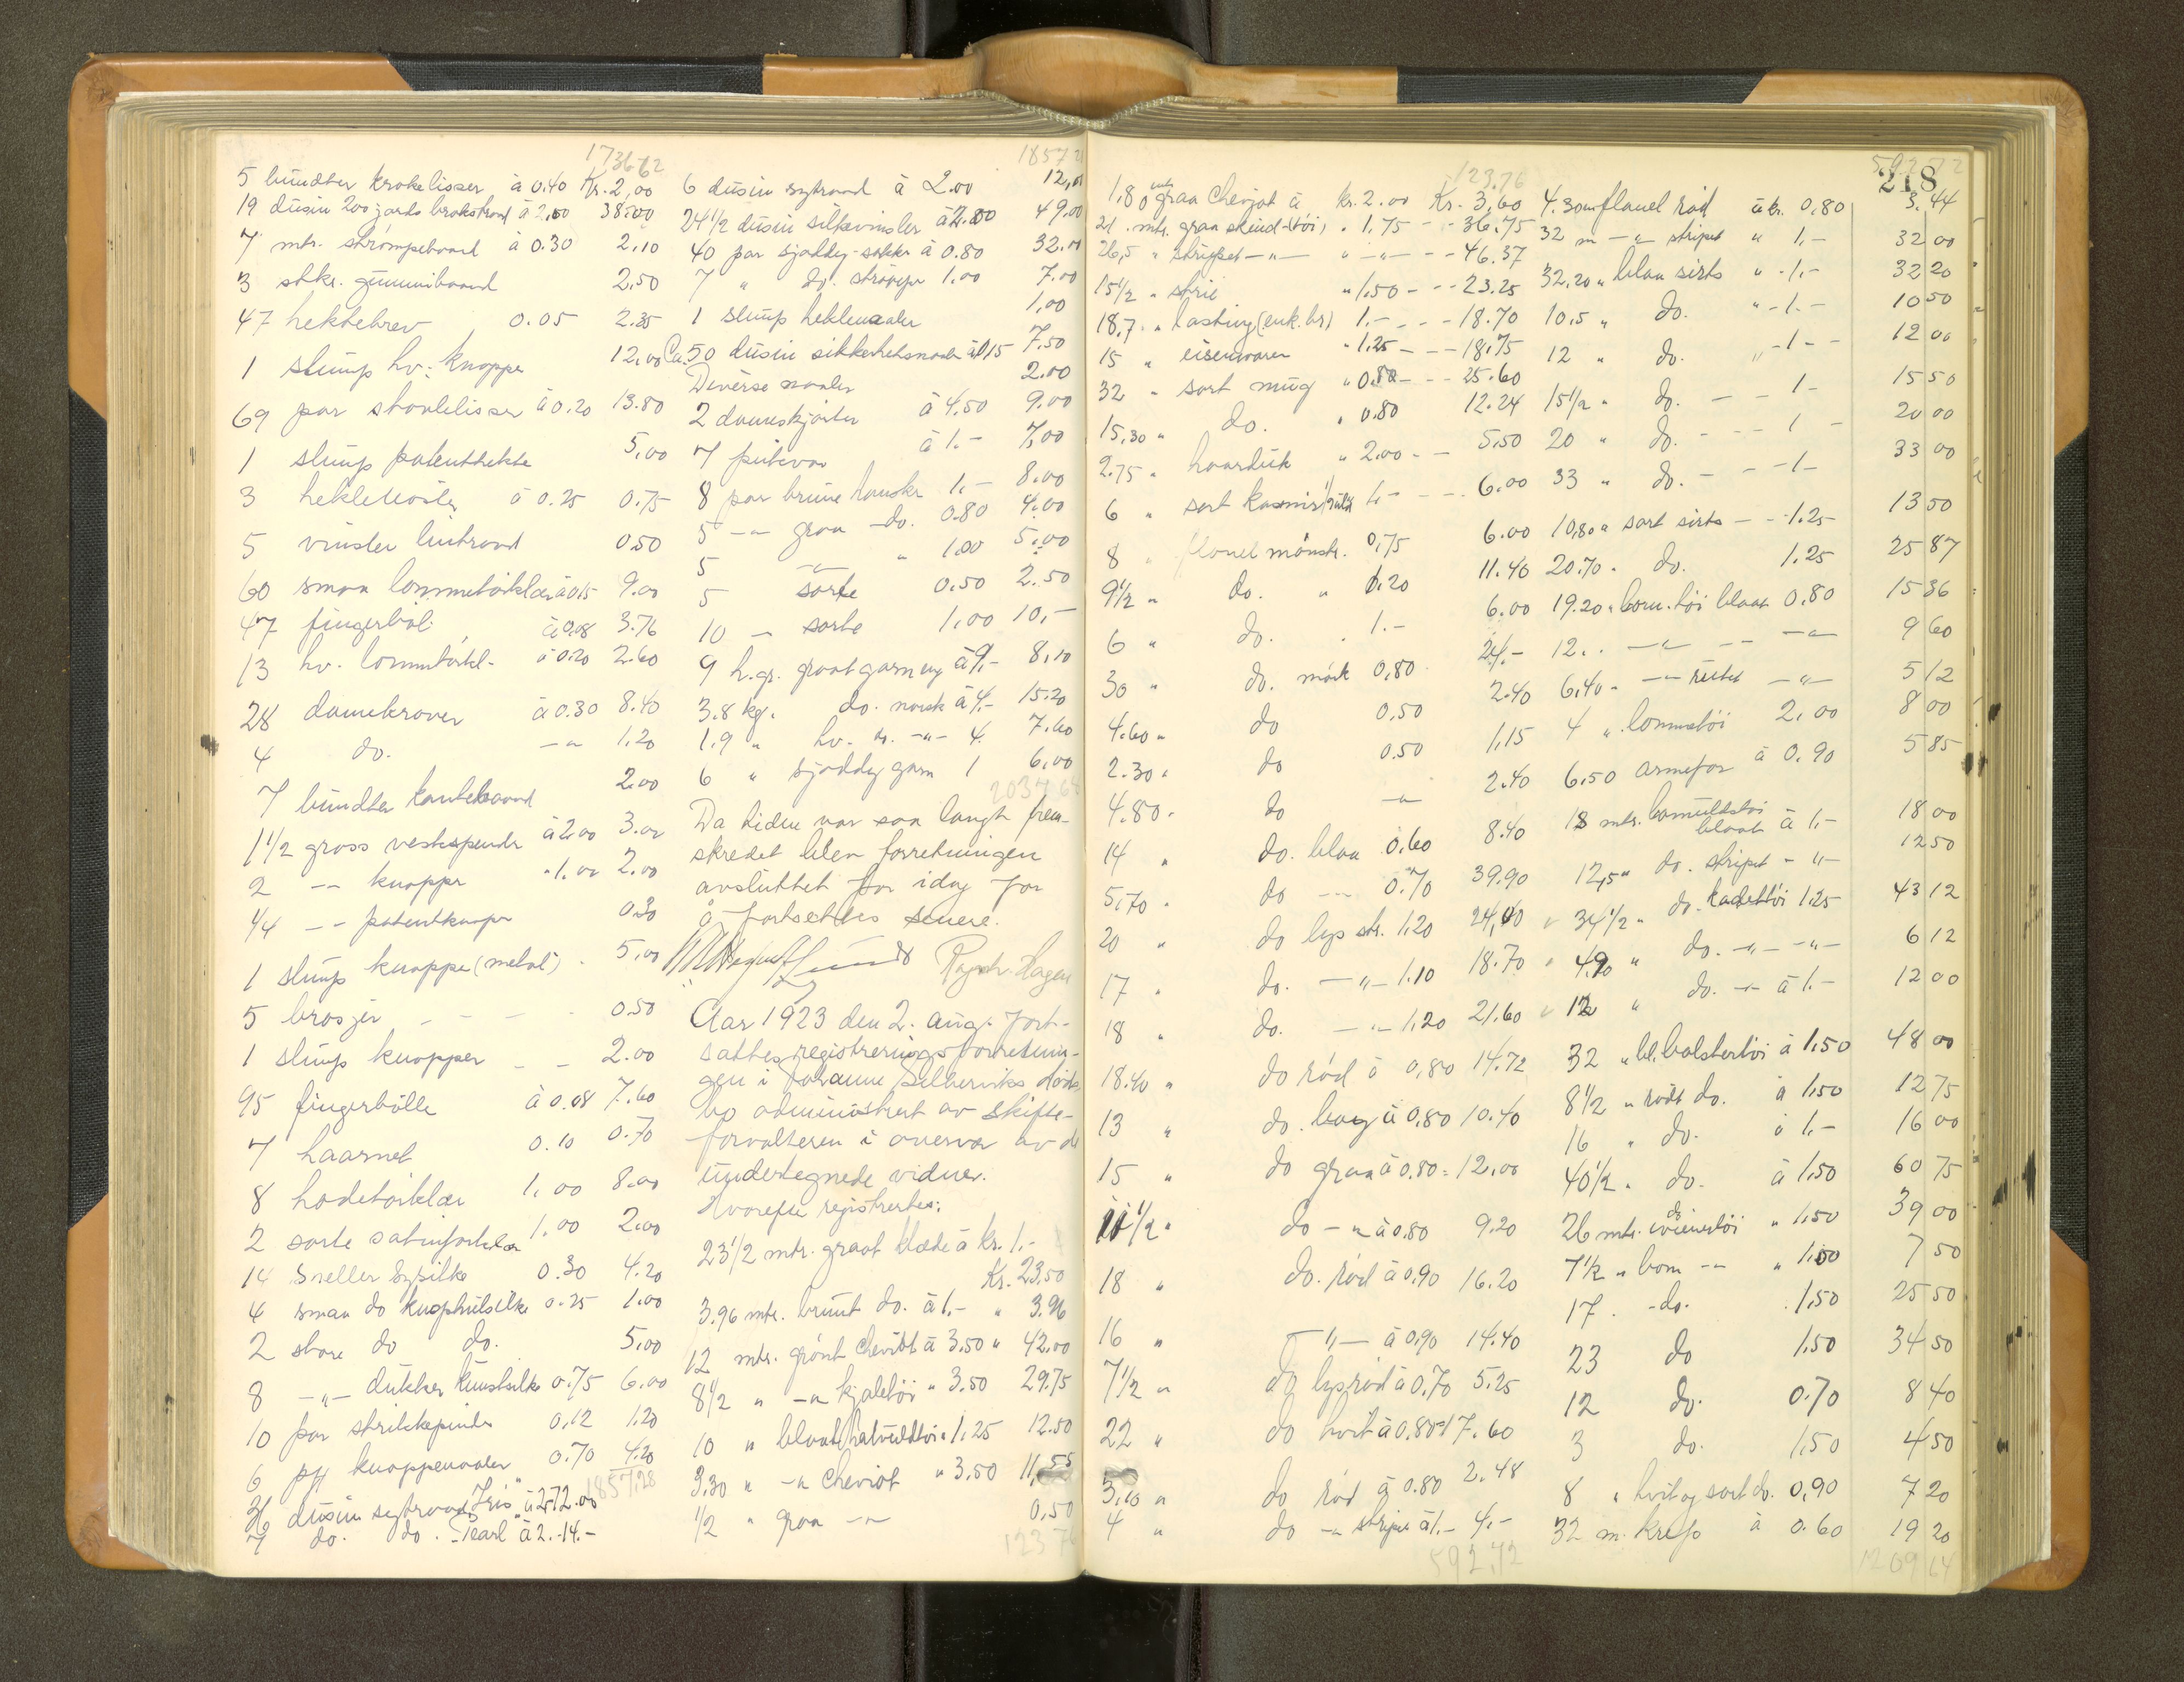 1736 62
5 bundter krokelisser à 0.40 Kr. 2,00
19 dusin 200 yards brokstraad à 2,00 38,00
7 mtr. strømpebaand à 0.30 2,10
3 stkr. gummibaand 2,50
47 hektebrev 0.05 2.35
1 slump hv. knapper 12,00
69 par skolisser à 0.20 13.80
1 slump patenthekte 5,00
3 heklenaaler à 0.25 0.75
5 vinsler lintraad 0.50
60 smaa lommetørklær à 0.15 9.00
47 fingerbøl à 0.08 3.76
13 hv. lommetørkl. à 0.20 2.60
28 damekraver à 0.30 8.40
4 do. -"- 1.20
7 bundter kantebaand 2.00
1 1/2 gross vestspender à 2.00 3.00
2 -"- knapper " 1.00 2.00
1/4 -"- patentknapper 0.30
1 slump knapper (metal) 5,00
5 brosjer 0.50
1 slump knapper 2.00
95 fingerbølle à 0.08 7.60
7 haarnet 0.10 0.70
8 hodetørklær 1,00 8.00
2 sorte satinforklær 1.00 2.00
14 sneller sysilke 0.30 4.20
4 smaa do knaphulsilke 0.25 1.00
2 store do do. 5,00
8 -"- dukker kunstsilke 0.75 6.00
10 par strikkepinder 0,12 1.20
6 pk knappenaaler 0.70 4.20
1857,28
36 dusin sytraad "Iris" à 2. 72.00
7 do. do. Pearl à 2.- 14.-
1857 28
6 dusin sytraad à 2.00 12,00
24 1/2 dusin silkevinsler à 2.00 49.00
40 par sjoddy-sokker à 0.80 32.00
7 " do. strømper 1,00 7.00
1 slump heklenaaler 1,00
Ca. 50 dusin sikkerhetsnaaler à 0.15 7.50
Diverse naaler 2.00
2 dameskjorter à 4.50 9.00
7 putevar à 1.- 7,00
8 par brune hansker 1.- 8.00
5 -"- graa -do. 0.80 4.00
5 -"- " 1.00 5.00
5 sorte 0.50 2.50
10 - sorte 1,00 10,-
9 h.gr. graat garn eng à 9,- 8,10
3.8 kg. do. norsk à 4.- 15.20
1.9 " hv. do. -"- 4. 7.60
6 " sjoddy garn 1 6,00
2037 68
Da tiden var saa langt frem-
skredet blev forretningen
avsluttet for idag for
å fortsettes senere.
Ragnh. Hagen
Aar 1923 den 2. aug. fort-
sattes registreringsforretnin-
gen i Johanne Selbervik's døds-
bo administrert av skifte-
forvalteren i overvær av de
undertegnede vidner.
Hvorefter registrertes:
23 1/2 mtr. graat klæde à kr. 1.-
Kr. 23,50
3,96 mtr. brunt do. à 1.- " 3.96
12 mtr. grønt cheviot à 3.50 " 42,00
8 1/2 " -"- kjoletøi " 3.50 29.75
10 " blaat halvuldtøi " 1,25 12.50
3.30 " -"- cheviot " 3.50 11,55
1/2 " graa -"- 0,50
123 76
123.76
1,80 mtr graa cheviot à kr. 2.00 Kr. 3,60
21 mtr. graa skind-tøi " 1,75 - - 36.75
26,5 " stripet -"- " -"- - - 46.37
15 1/2 " strie " 1,50 - - 23.25
18,7 " lasting (enk. br) 1.- - - 18.70
15 " eisenvarer " 1.25 - - 18,75
32 " sort mug " 0.80 - - 25.60
15,30 " do. " 0.80 12.24
2.75 " haarduk " 2.00 - - 5,50
6 " sort kasmir 1.- - - 6.00
8 " flanel mønstr. 0,75 6.00
9 1/2 " do. " 1.20 11.40
6 " do. " 1.- 6.00
30 " do. mørk 0,80 24.-
4.60 " do 0.50 2.40
2.30 " do 0.50 1,15
4.80 " do -"- 2.40
14 " do. blaa 0.60 8.40
5,70 " do -"- 0.70 39.90
20 " do lys str. 1.20 24,00
17 " do. -"- 1.10 18.70
18 " do. -"- 1.20 21.60
18.40 " do rød à 0,80 14.72
13 " do. beg à 0.80 10.40
15 " do graa à 0.80 = 12.00
11 1/2 " do -"- à 0.80 9.20
18 " do. rød à 0.90 16.20
16 " -"- à 0.90 14.40
7 1/2 " do lysrød à 0.70 5.25
22 " do hvit à 0.80 = 17.60
3,10 " do rød à 0.80 2.48
4 " do -"- stripe à 1.- 4.-
592,72
592 72
218
4.30 m flanel rød à kr. 0,80 3.44
32 m -"- stripet " 1,- 32 00
32,20 " blaa sirts " - 1.- 32 20
10,5 " do. " - 1.- 10 50
12 " do. " - 1.- 12 00
15 1/2 " do. - - 1- 15 50
20 " do. - - - 1 - 20 00
33 " do. - - - 1.- 33 00
10,80 " sort sirts - - 1.25 13 50
20.70 " do. 1.25 25 87
19.20 " bom. tøi blaat 0.80 15 36
12 " -"- -"- 9 60
6,40 " -"- rutet -"- 5 12
4 " lommetøi 2,00 8 00
6,50 armefor à 0.90 5 85
18 mtr. bomuldstøi
blaat à 1.- 18 00
12,5 " do. stripet - "- 12 50
34 1/2 " do. kadettøi 1.25 43 12
4.90 " do. -"- -"- 6 12
12 " do. -"- à 1.- 12 00
32 " bl. bolstertøi à 1.50 48 00
8 1/2 " rødt do. à 1.50 12 75
16 " do. à 1.- 16 00
40 1/2 " do. à 1.50 60 75
26 mtr. do wienertøi " 1,50 39 00
7 1/2 " bom -"- " 1.00 7 50
17 " -do. 1,50 25 50
23 do 1.50 34 50
12 do. 0.70 8 40
3 do. 1,50 4 50
8 " hvit og sort do. 0,90 7 20
32 m. krep à 0.60 19 20
1209 64